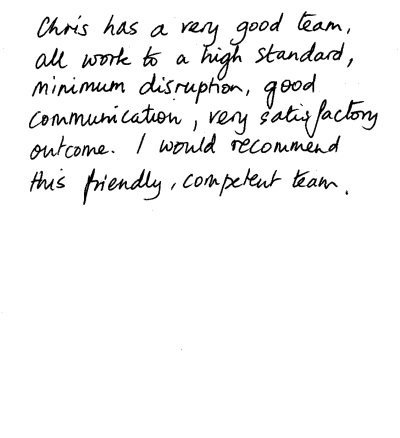 Chris has a very good team,
all work to a high standard,
minimum disruption, good
communication, very satisfactory
outcome. I would recommend
this friendly, competent team.